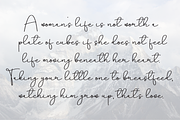 A womans life is not worth a
plate of cubes if she does not feel
life moving beneath her heart.
Taking your little one to breastfeed,
watching him grow up, thats love.